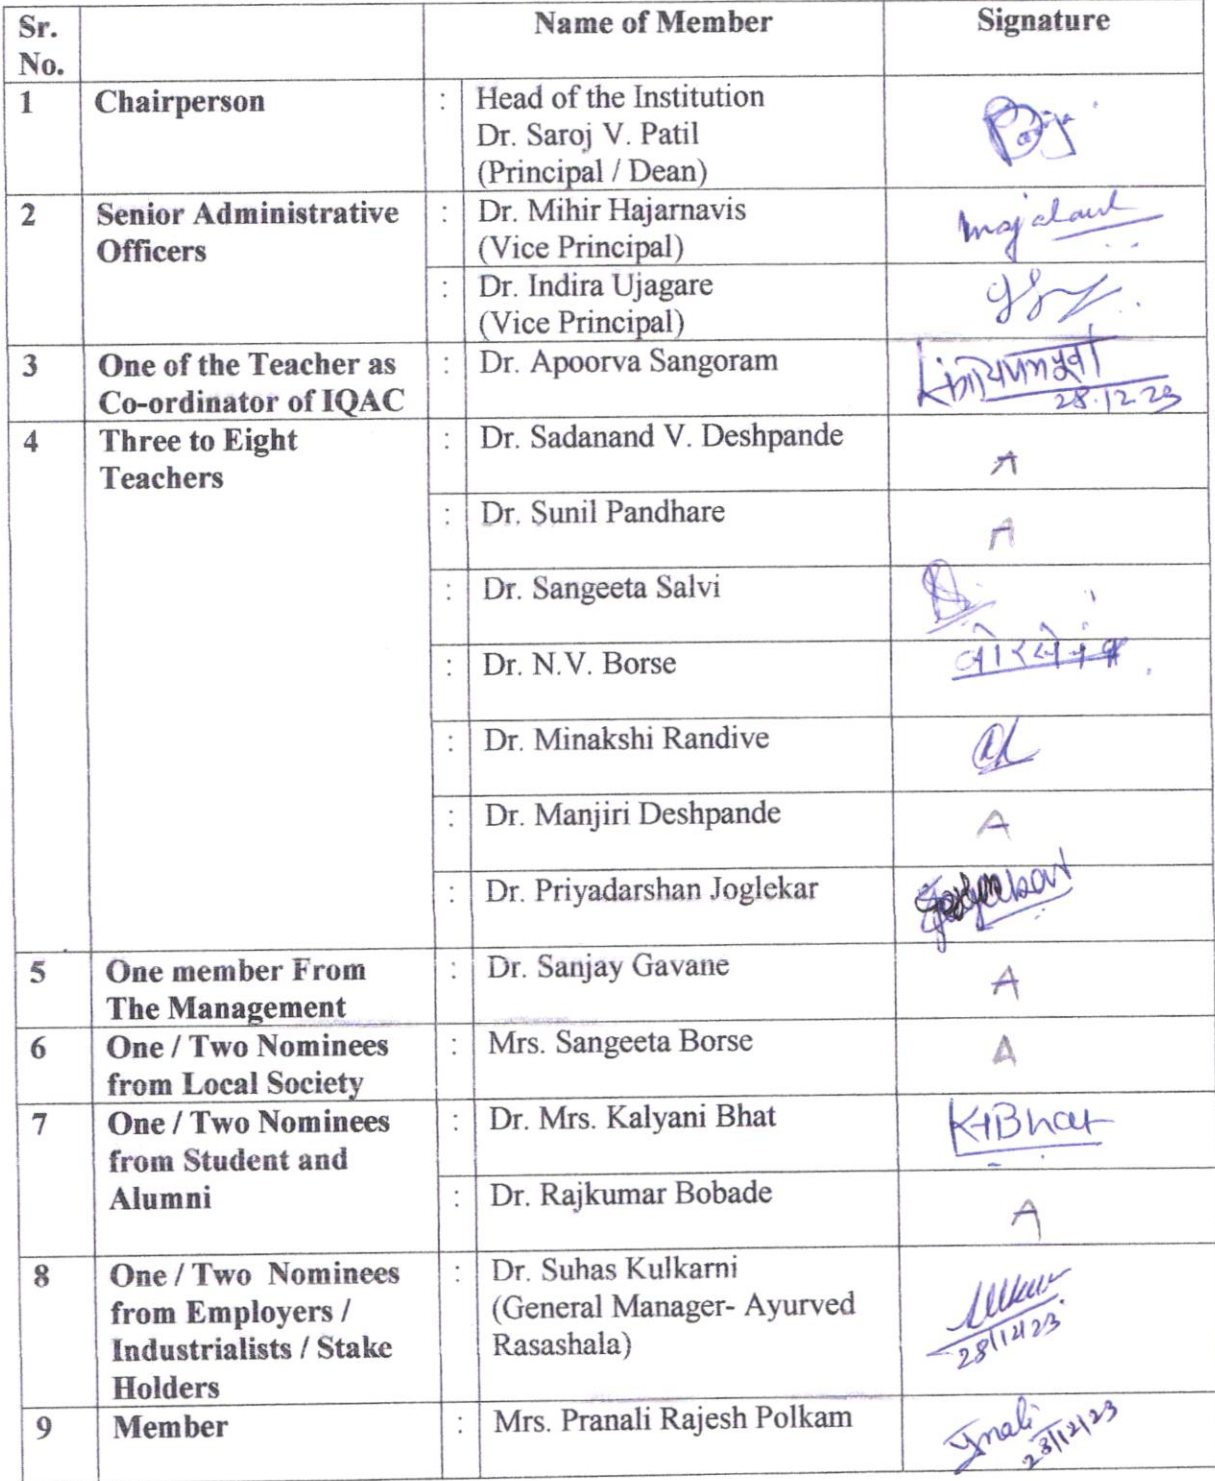 Sr. No.
Name of Member
Signature
1
Chairperson
:
Head of the Institution
Dr. Saroj V. Patil
(Principal / Dean)
2
Senior Administrative
Officers
:
Dr. Mihir Hajarnavis
(Vice Principal)
:
Dr. Indira Ujagare
(Vice Principal)
3
One of the Teacher as
Co-ordinator of IQAC
:
Dr. Apoorva Sangoram
28.12.23
4
Three to Eight
Teachers
:
Dr. Sadanand V. Deshpande
A
:
Dr. Sunil Pandhare
A
:
Dr. Sangeeta Salvi
:
Dr. N.V. Borse
:
Dr. Minakshi Randive
:
Dr. Manjiri Deshpande
A
:
Dr. Priyadarshan Joglekar
5
One member From
The Management
:
Dr. Sanjay Gavane
A
6
One / Two Nominees
from Local Society
:
Mrs. Sangeeta Borse
A
7
One / Two Nominees
from Student and
Alumni
:
Dr. Mrs. Kalyani Bhat
KHBhat
:
Dr. Rajkumar Bobade
A
8
One / Two Nominees
from Employers /
Industrialists / Stake
Holders
:
Dr. Suhas Kulkarni
(General Manager- Ayurved
Rasashala)
28/12/23
9
Member
:
Mrs. Pranali Rajesh Polkam
28/12/23